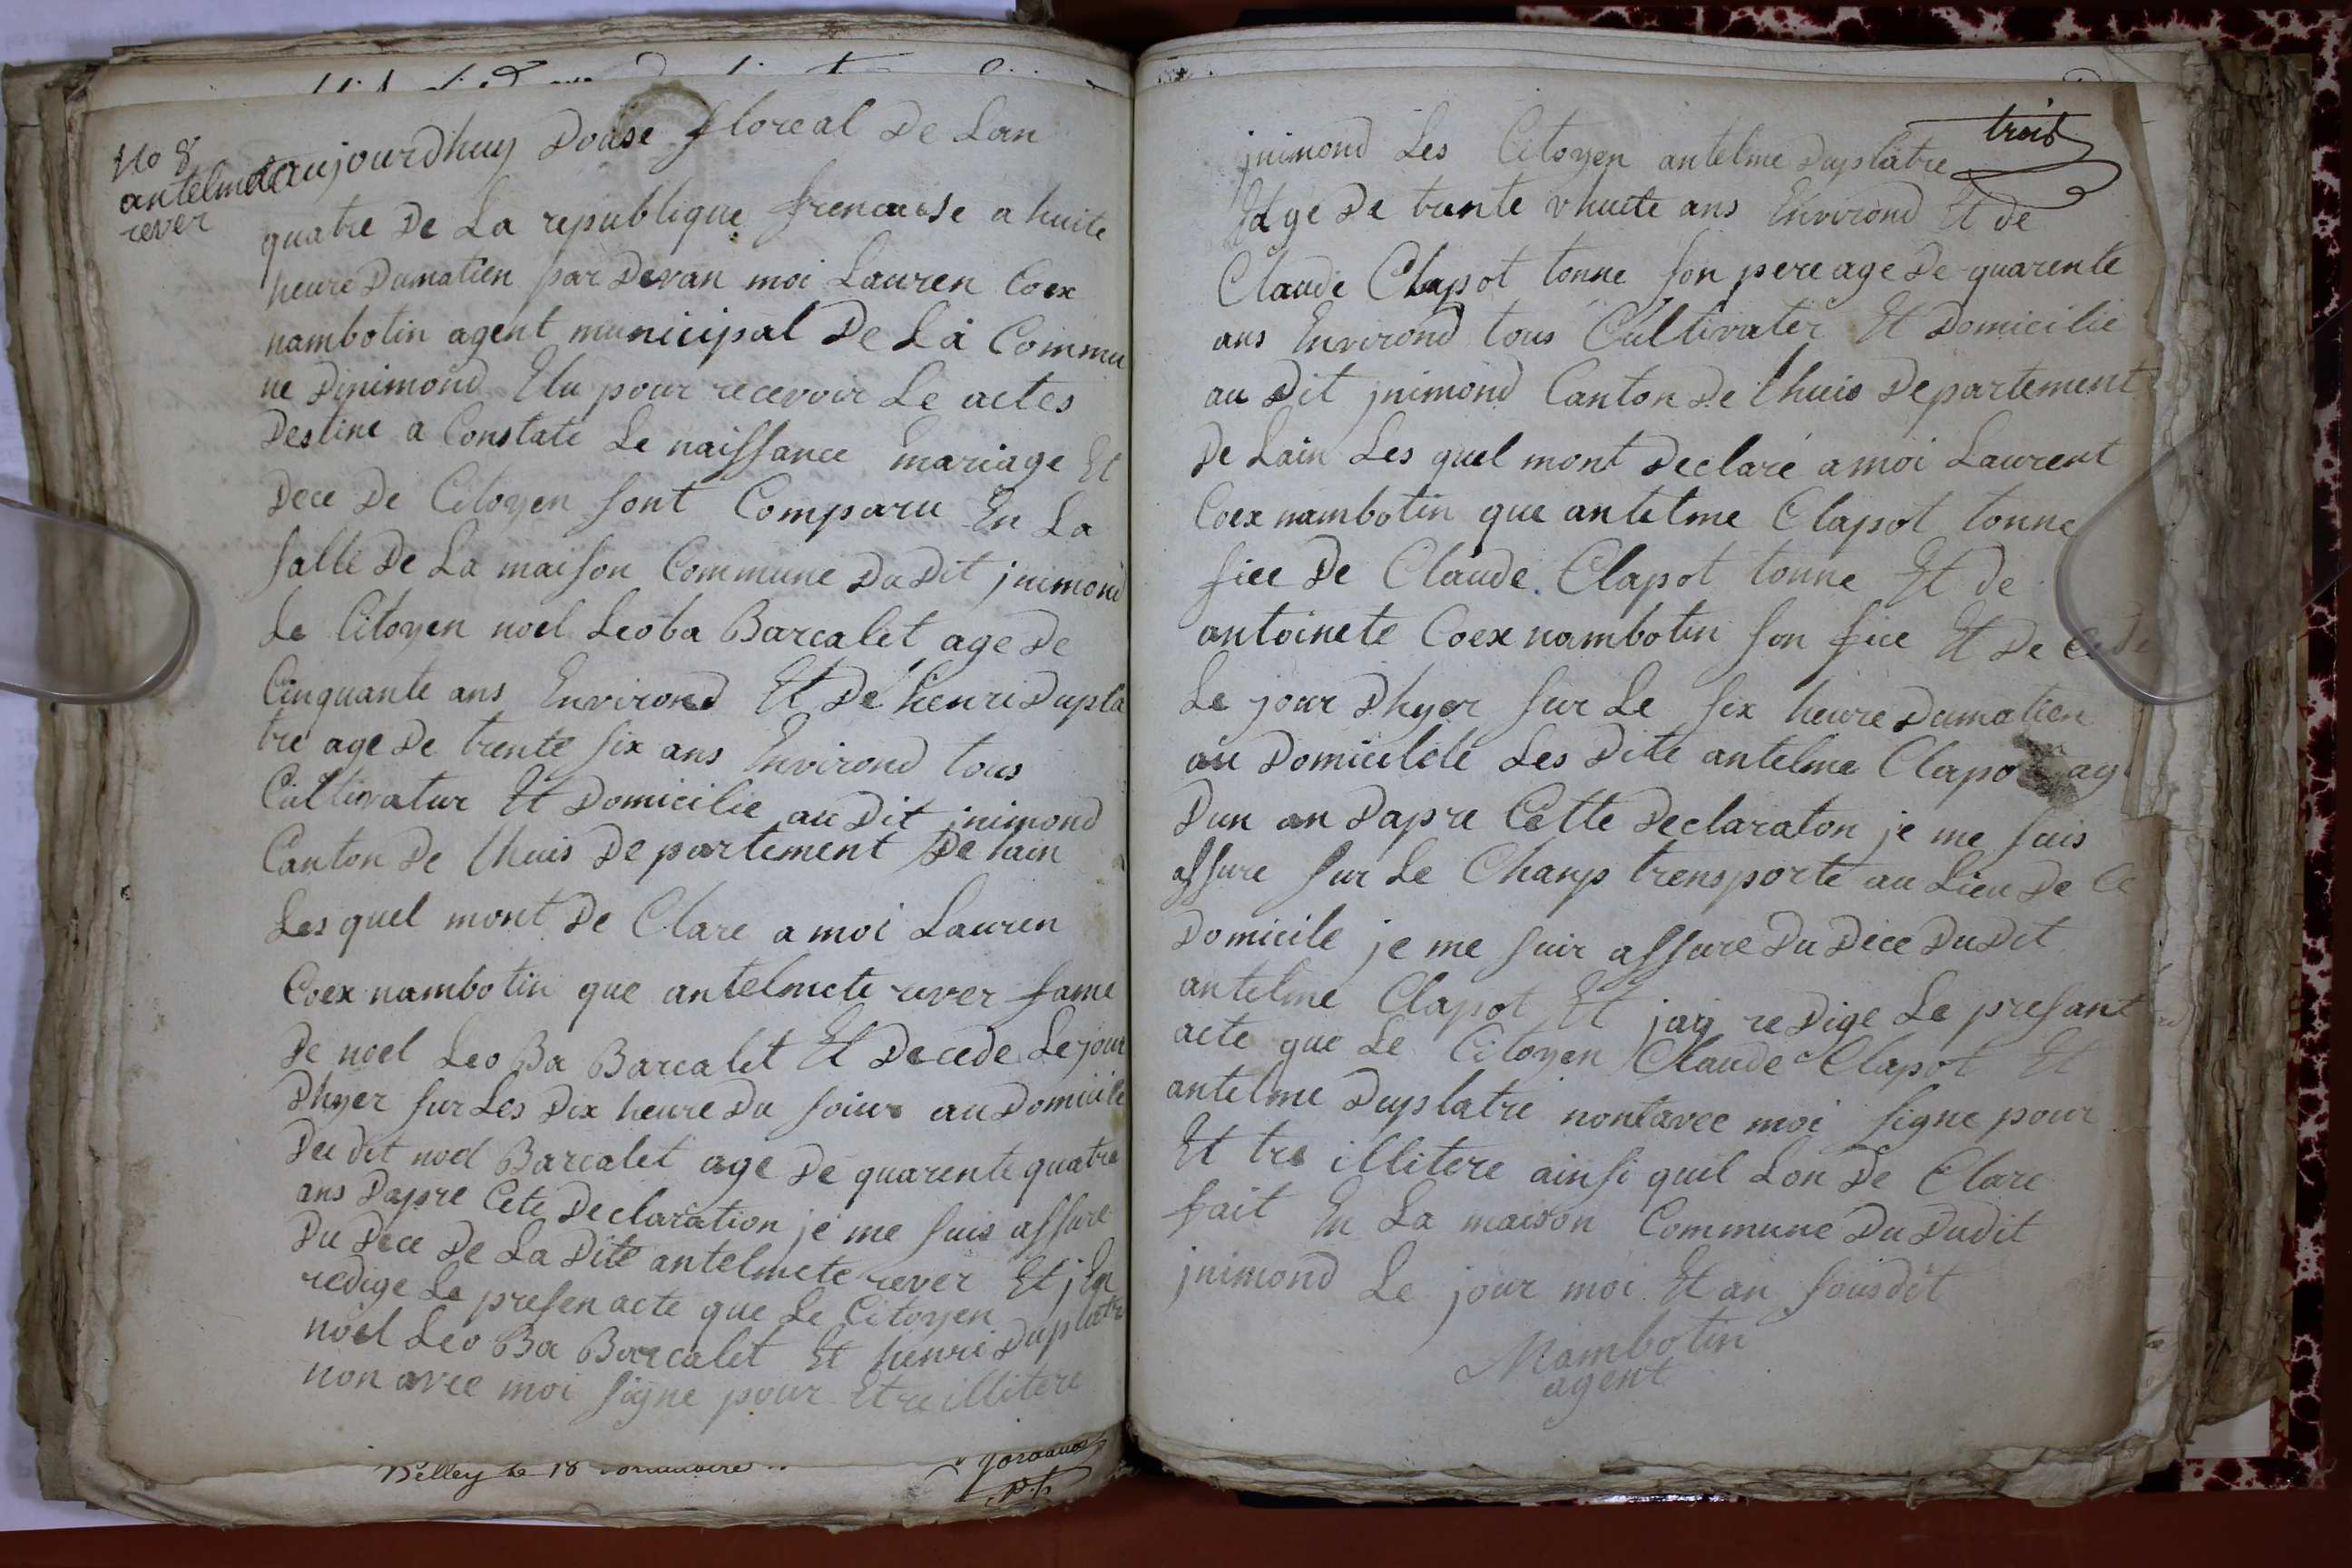 No 8
antelmete
rever
aujourdhuy Douse floreal De Lan
quatre De La republique frencaise a huite
heure Dumatien par Devan moi Lauren Coex
nambotin agent municipal De La Commu
ne Djnimond Elu pour recevoir Le actes
Destine a Constate Le naissance mariage Et
Dece De Citoyen sont Comparu En La
salle De La maison Commune Du Dit jnimond
Le Citoyen noel Leoba Barcalet age De
Cinquante ans Environd Et De henri Dupla
tre age De trente six ans Environd tous
Cultivatur Et Domicilie au Dit jnimond
Canton De lhuis De partement De lain
Les quel mont De Clare a moi Lauren
Coex nambotin que antelmete rever fame
De noel Leo Ba Barcalet Et Decede Le jour
Dhyer sur Les Dix heure Du soiur au Domicile
Du dit noel Barcalet age De quarente quatre
ans Dapre Cete Declaration je me suis assure
Du Dece De La Dite antelmete rever Et jEn
redige Le presen acte que Le Citoyen
noel Leo Ba Barcalet Et henri Duplatre
non avec moi signe pour Etre illitere
Belley le 18
trois
jnimond Les Citoyen antelme Duplatre
Age De trente vhuite ans Environd Et de
Claude Clapot tonne son pere age De quarente
ans Environd tous Cultivater Et Domicilie
au Dit jnimond Canton De lhuis Departement
De Lain Les quel mont Declaré a moi Laurent
Coex nambotin que antelme Clapot tonne
fice De Claude Clapot tonne Et de
antoinete Coex nambotin son fice Et De Cede
Le jour Dhyer sur Le six heure Dumatien
au Domicilele Les Dite antelme Clapot ag
Dun an Dapre Cette Declaraton je me suis
assure sur Le Champ trensporte au Lieu De Ce
Domicile je me suir assure Du Dece Du Dit
antelme Clapot Et jay redige Le presant
acte que Le Citoyen Claude Clapot Et
antelme Duplatre nont avec moi signe pour
Et tre illitere ainsi quil Lon De Clare
fait En La maison Commune Du Dudit
jnimond Le jour moi Et an sousdit
Nambotin
agent